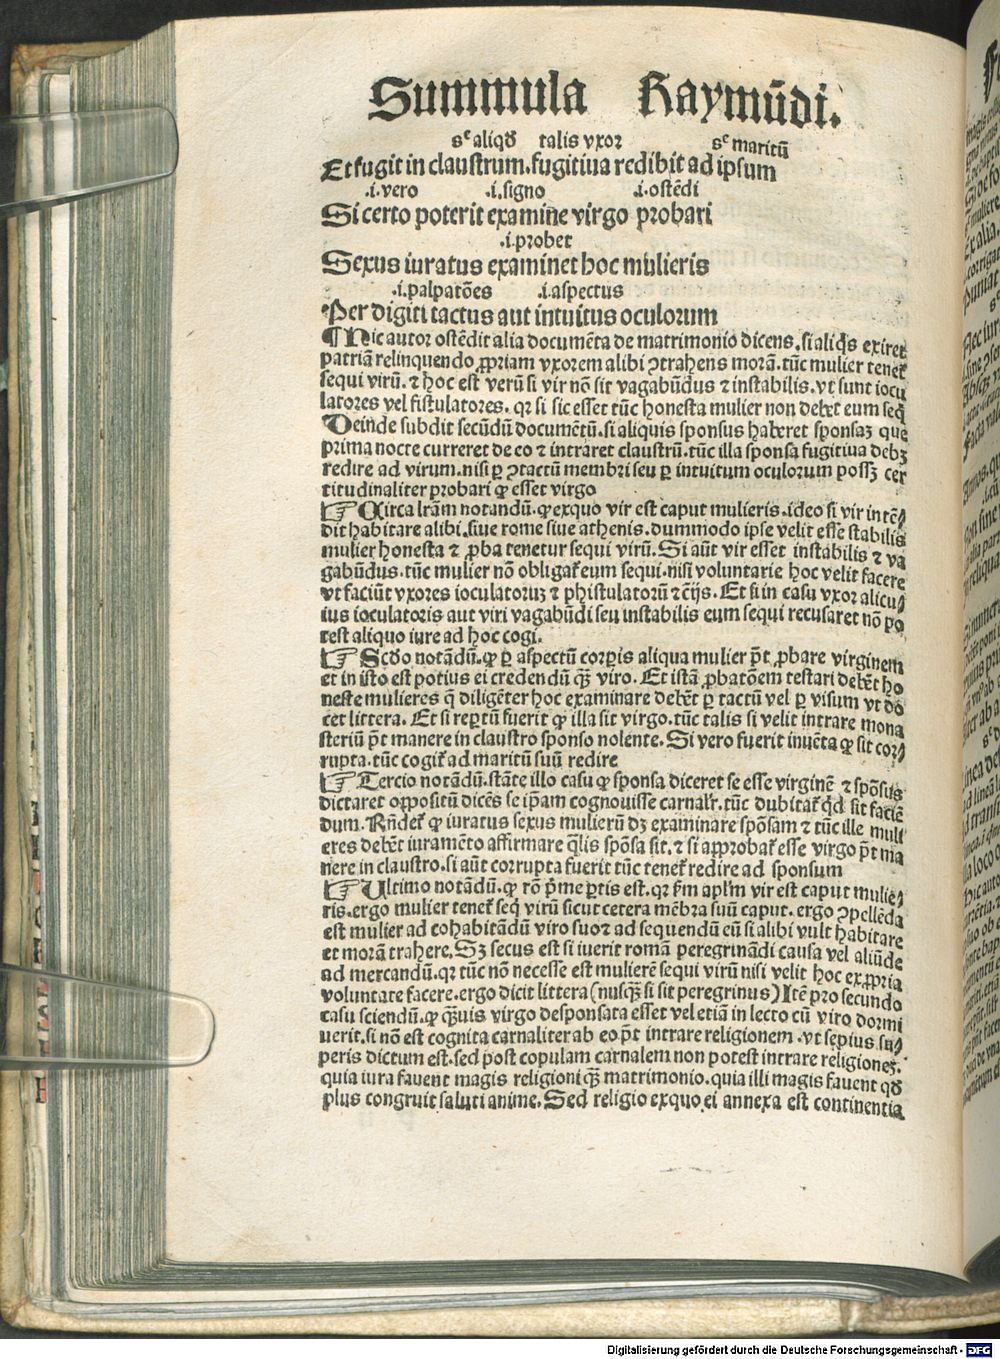 Summula Raymūdi.
sꝫ aliqd̄ talis vxor sꝫ maritū
Et fugit in claustrum.fugitiua redibit ad ipsum
.i.vero .i.signo .i.ostēdi
Si certo poterit examine virgo probari
.i.probet
Sexus iuratus examinet hoc mulieris
.i.palpatōes .i.aspectus
Per digiti tactus aut intuitus oculorum
¶Hic autor ostēdit alia documēta de matrimonio dicens.si aliqͥs exiret
patriā relinquendo ꝓpriam vxorem alibi ꝯtrahens morā.tūc mulier tenet᷑
sequi virū.⁊ hoc est verū si vir nō sit vagabūdus ⁊ instabilis.vt sunt iocu
latores vel fistulatores.qꝛ si sic esset tūc honesta mulier non debet eum seq̄
Deinde subdit secūdū documētū.si aliquis sponsus haberet sponsaꝫ que
prima nocte curreret de eo ⁊ intraret claustrū.tūc illa sponsa fugitiua debꝫ
redire ad virum.nisi ꝑ ꝯtactū membri seu ꝑ intuitum oculorum possꝫ cer
titudinaliter probari ꝙ esset virgo
☞Circa lr̄am notandū.ꝙ exquo vir est caput mulieris.ideo si vir intē⸗
dit habitare alibi.siue rome siue athenis.dummodo ipse velit esse stabilis
mulier honesta ⁊ ꝓba tenetur sequi virū.Si aūt vir esset instabilis ⁊ va
gabūdus.tūc mulier nō obligat᷑ eum sequi.nisi voluntarie hoc velit facere
vt faciūt vxores ioculatoruꝫ ⁊ phistulatorū ⁊ cͥijs.Et si in casu vxor alicu⸗
ius ioculatoris aut viri vagabūdi seu instabilis eum sequi recusaret nō po
test aliquo iure ad hoc cogi.
☞Scd̄o notādū.ꝙ ꝑ aspectū corꝑis aliqua mulier pōt ꝓbare virginem
et in isto est potius ei credendū qꝫ viro.Et istā ꝓbatōem testari debēt ho
neste mulieres q̄ diligēter hoc examinare debēt ꝑ tactū vel ꝑ visum vt do
cet littera.Et si reꝑtū fuerit ꝙ illa sit virgo.tūc talis si velit intrare mona
steriū pōt manere in claustro sponso nolente.Si vero fuerit inuēta ꝙ sit cor⸗
rupta.tūc cogit᷑ ad maritū suū redire
☞Tercio notādū.stāte illo casu ꝙ sponsa diceret se esse virginē ⁊ spōsus
dictaret oppositū dicēs se ip̄am cognouisse carnalr̄.tūc dubitat᷑ qd̄ sit faciē
dum.Rn̄det᷑ ꝙ iuratus sexus mulierū dꝫ examinare spōsam ⁊ tūc ille muli
eres debēt iuramēto affirmare q̄lis spōsa sit.⁊ si approbat᷑ esse virgo pōt ma
nere in claustro.si aūt corrupta fuerit tūc tenet᷑ redire ad sponsum
☞Ultimo notādū.ꝙ rō pͥme ꝑtis est.qꝛ ẜm apl̄m vir est caput mulie⸗
ris.ergo mulier tenet᷑ seq̄ virū sicut cetera mēbra suū caput.ergo ꝯpellēda
est mulier ad cohabitādū viro suo ⁊ ad sequendū eū si alibi vult habitare
et morā trahere.Sꝫ secus est si iuerit romā peregrinādi causa vel aliūde
ad mercandū.qꝛ tūc nō necesse est mulierē sequi virū nisi velit hoc ex ꝓpria
voluntate facere.ergo dicit littera (nusqꝫ si sit peregrinus) Itē pro secundo
casu sciendū.ꝙ qꝫuis virgo desponsata esset vel etiā in lecto cū viro dormi
uerit.si nō est cognita carnaliter ab eo.pōt intrare religionem.vt sepius su⸗
peris dictum est.sed post copulam carnalem non potest intrare religioneꝫ.
quia iura fauent magis religioni qꝫ matrimonio.quia illi magis fauent qd̄
plus congruit saluti anime.Sed religio exquo ei annexa est continentia
Digitalisierung gefördert durch die Deutsche Forschungsgemeinschaft - DFG